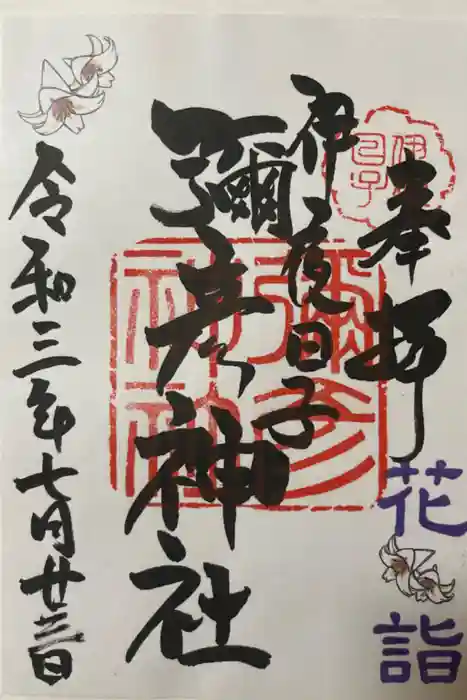 奉拝
花詣
伊夜日子
彌彦神社
令和三年七月廿三日
彌彦神社